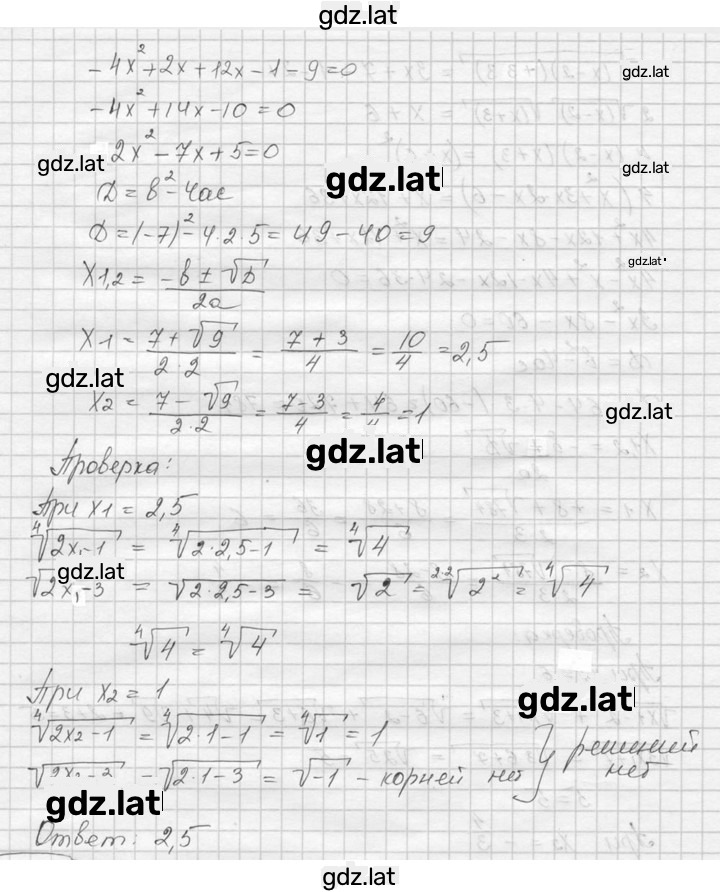 gdz.lat
-4x²+2x+12x-1-9=0
gdz.lat
-4x²+14x-10=0
2x²-7x+5=0
gdz.lat
gdz.lat
gdz.lat
D=b²-4ac
D=(-7)²-4·2·5=49-40=9
gdz.lat
x1,2 = (-b ± √D)/2a
x1 = (7+√9)/(2·2) = (7+3)/4 = 10/4 = 2,5
gdz.lat
x2 = (7-√9)/(2·2) = (7-3)/4 = 4/4 = 1
gdz.lat
gdz.lat
Проверка:
При x1 = 2,5
⁴√(2x1-1) = ⁴√(2·2,5-1) = ⁴√4
gdz.lat
√(2x1-3) = √(2·2,5-3) = √2 = ²·²√(2²) = ⁴√4
⁴√4 = ⁴√4
При x2 = 1
gdz.lat
⁴√(2x2-1) = ⁴√(2·1-1) = ⁴√1 = 1
√(2x2-3) - √(2·1-3) = √-1 - корней нет } решений нет
gdz.lat
Ответ: 2,5
gdz.lat